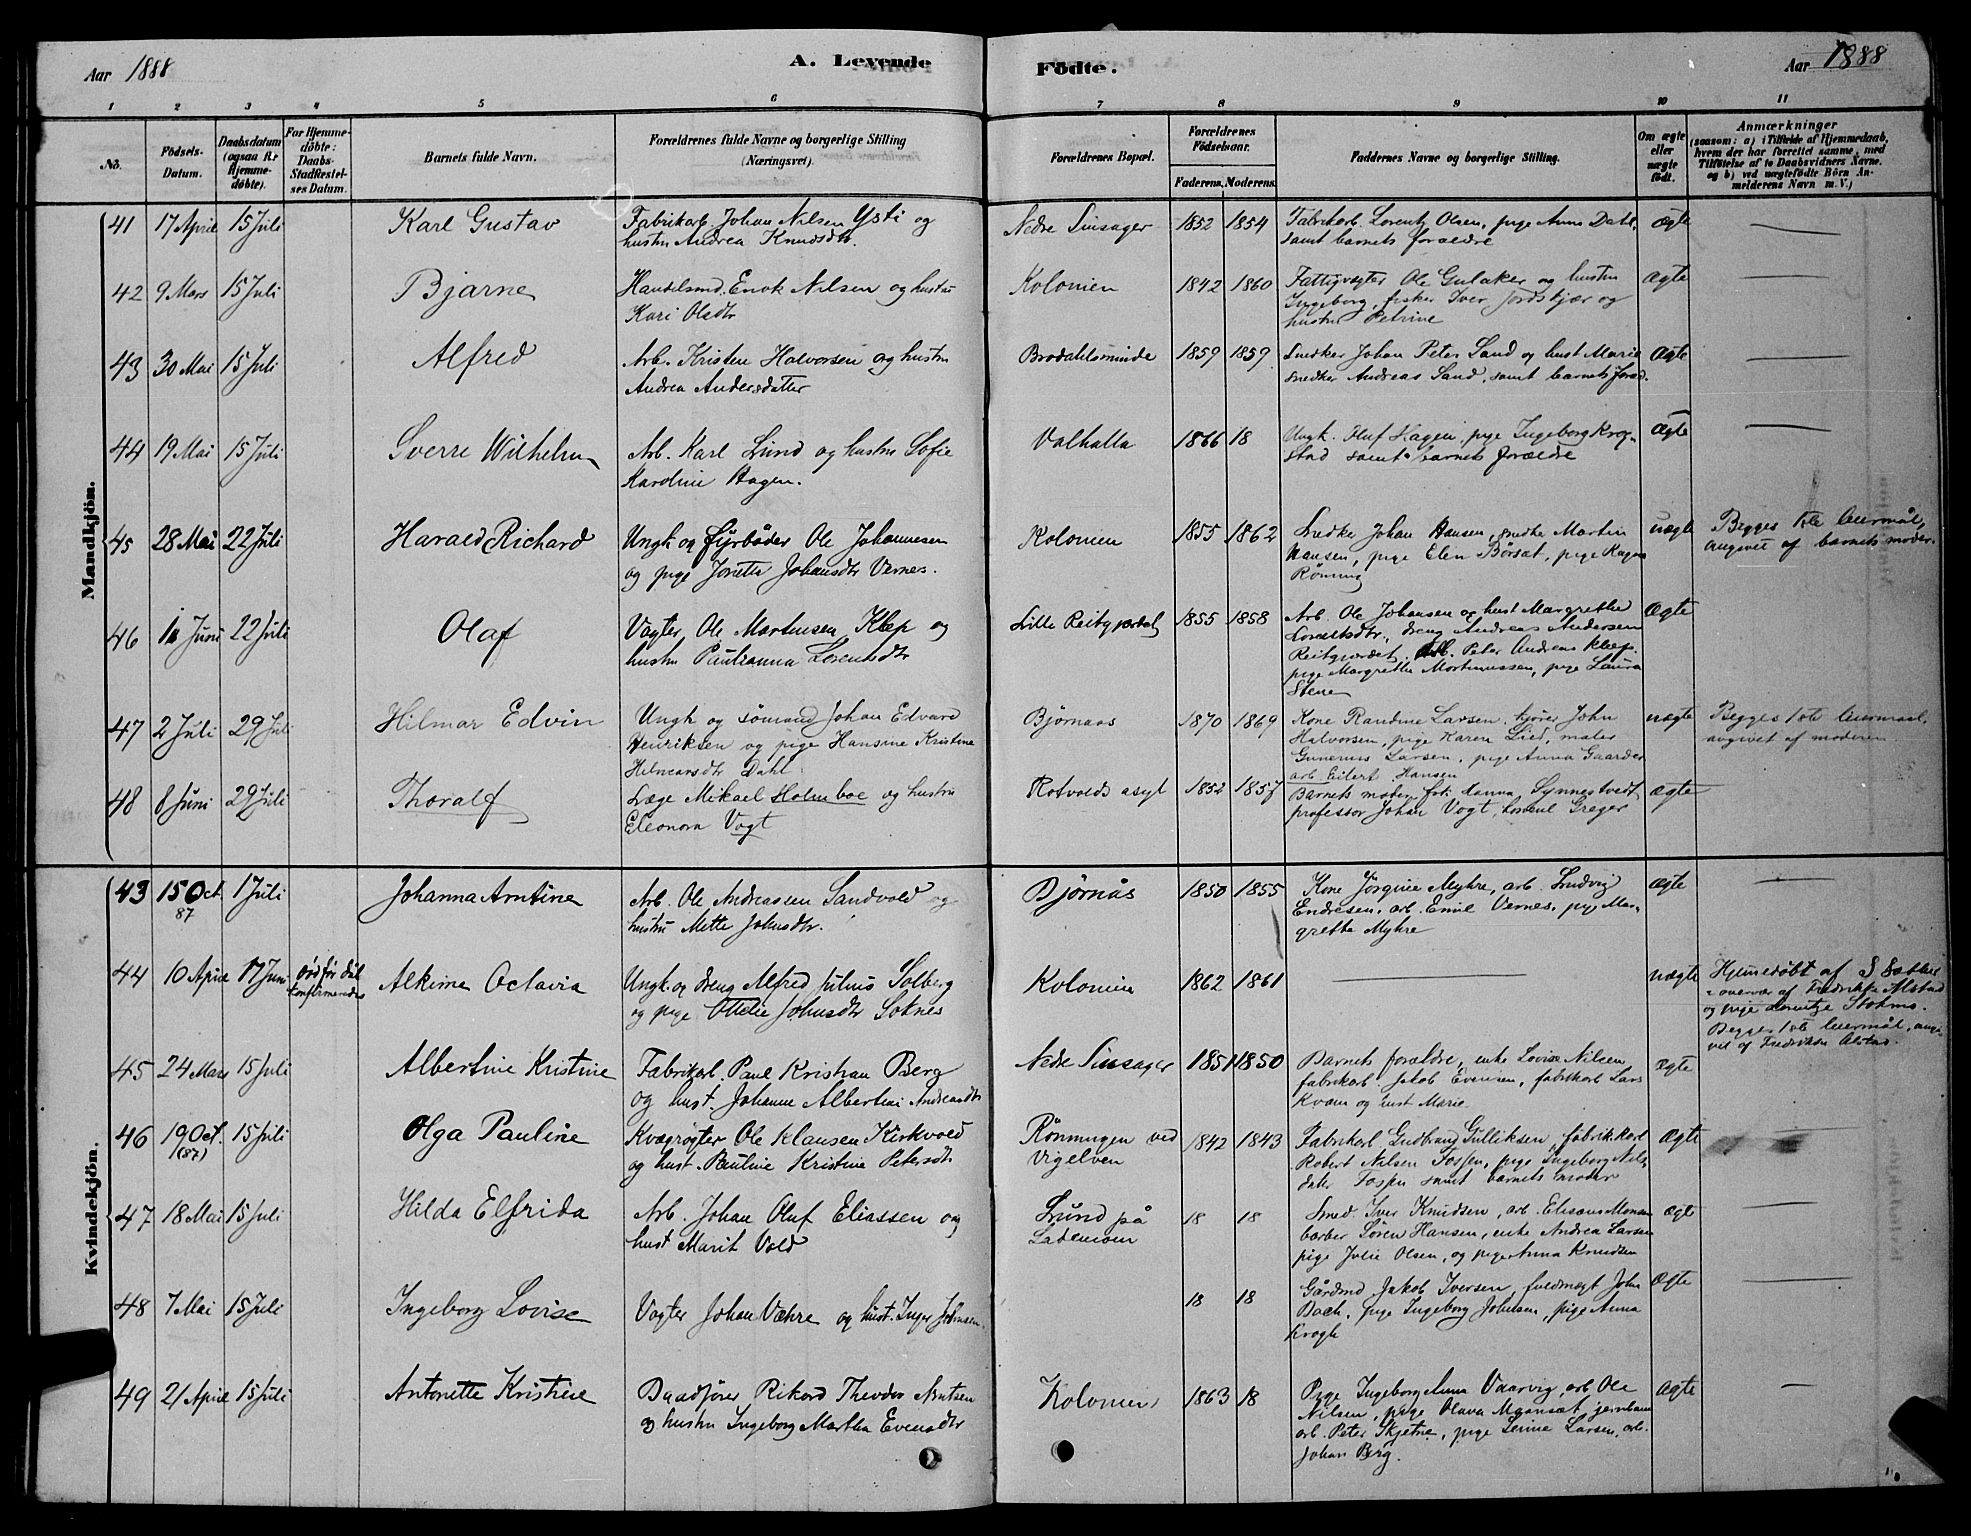 Aar 1888
A. Levende
Födte.
Aar 1888
1 2 3 4 5 6 7 8 9 10 11
No.
Födsels-
Datum.
Daabsdatum
(ogsaa f. Hjemme-
döbte).
For Hjemme-
döbte:
Daabs-
Stadfæstel-
ses Datum.
Barnets fulde Navn.
Forældrenes fulde Navne og borgerlige Stilling
(Næringsvei).
Forældrenes Bopæl.
Forældrenes
Födselsaar.
Faderens. Moderens.
Faddernes Navne og borgerlige Stilling.
Om ægte
eller
uægte
födt.
Anmærkninger
(saasom: a) i Tilfælde af Hjemmedaab,
hvem der har forrettet samme, med
Tilföielse af to Daabsvidners Navne,
og b) ved uægtefödte Börn An-
melderens Navn m. V.)
Mandkjön.
41 17 April 15 Juli Karl Gustav Fabrikarb. Johan Nilsen Ysti og
hustru Andrea Knudsdtr.
Nedre Sinsager 1852 1854 Fabrikarb. Lorentz Olsen, pige Anna Dahl,
samt barnets forældre
ægte
42 9 Mars 15 Juli Bjarne Handelsmd. Enok Nilsen og hustru
Kari Olsdtr
Kolonien 1842 1860 Fattigvogter Ole Gulaker og hustru
Ingeborg, fisker Iver Jordskjær og
hustru Petrine
Ægte
43 30 Mai 15 Juli Alfred Arb. Kristen Halvorsen og hustru
Andrea Andersdatter
Brodahlsminde 1859 1859 Snedker Johan Peter Sand og hust Marie
snedker Andreas Sand, samt barnets foræl.
Ægte
44 19 Mai 15 Juli Sverre Wilhelm Arb. Karl Lund og hustru Sofie
Karoline Hagen.
Valhalla 1866 18 Ungk. Oluf Hagen, pige Ingeborg Krog-
stad samt barnets forældre
Ægte
45 28 Mai 22 Juli Harald Richard Ungk og Fyrbøder Ole Johannesen
og pige Jonetta Johansdtr Vernes.
Kolonien 1855 1862 Snedker Johan Hansen, snedker Martin
Hansen, pige Elen Børset, pige Ragna
Rönning
uægte Begges 1ste leiermål,
angivet af barnets moder.
46 1 Juni 22 Juli Olaf Vogter Ole Martinsen Klep og
hustru Paulianna Lorentsdtr
Lille Reitgjærdet 1855 1858 Arb. Ole Johansen og hust Margrethe
Lorentsdtr., dreng Andreas Andersen
Reitgjerdet, arb. Peter Andreas Klep,
pige Margrethe Mortinussen, pige Laura
Stene
Ægte
47 2 Juli 29 Juli Hilmar Edvin Ungk og sömand Johan Edvard
Henriksen og pige Hansine Kristine
Hilmarsdtr Dahl
Bjørnaas 1870 1869 Kone Randine Larsen, kjører John
Halvorsen, pige Karen Lied, maler
Gunerius Larsen, pige Anna Gaarder
arb Eilert Hansen
uægte Begges 1ste leiermaal,
avgivet af moderen
48 8 Juni 29 Juli Thoralf Læge Mikael Holmboe og hustru
Eleonora Vogt
Rotvolds asyl 1852 1857 Barnets moder, frk. Hanna Synnestvedt,
professor Johan Vogt, Greger
ægte
Kvindekjön.
43 15 Oct. 87 1 Juli Johanna Arntine Arb. Ole Andreassen Sandvold og
hustru Mette Johnsdtr.
Bjørnås 1850 1855 Kone Jörgine Myhre, arb. Ludvig
Endresen, arb. Emil Vernes, pige Mar-
grethe Myhre
Ægte
44 10 April 17 Juni død før dåb
konfirmeredes
Alkime Octavia Ungk. og dreng Alfred Julius Solberg
og pige Ottelie Johnsdtr Soknes
Kolonien 1862 1861
uægte Hjemmedøbt af
i overvær af Fredrikke Alstad
og pige
Begges 1ste leiermål, angi-
vet af Fredrikke Alstad.
45 24 Mars 15 Juli Albertine Kristine Fabrikarb. Paul Kristian Berg
og hust. Johanne Albertine Andreasdtr
Nedre Sinsager 1851 1850 Barnets forældre, enke Lovise Nilsen
fabrikarb. Jakob Evensen, fabrikarb Lars
Kvam og hust Marie.
Ægte
46 19 Oct. (87) 15 Juli Olga Pauline Kvægrøgter Ole Klausen Kirkvold
og hust. Pauline Kristine Petersdtr
Rønningen ved
Vigelven
1842 1843 Fabrikarb Gudbrand Gulliksen, fabrikkarb
Robert Nilsen Fossen, pige Ingeborg Nils-
datter Fossen samt barnets moder
Ægte
47 18 Mai 15 Juli Hilda Elfrida Arb. Johan Oluf Eliassen og
hust Marit Vold
Lund på
Lademoen
18 18 Smed Iver Knudsen, arb. Elisæus Monsen
barber Søren Hansen, enke Andrea Larsen
pige Julie Olsen, og pige Anna Knudsen
Ægte
48 7 Mai 15 Juli Ingeborg Lovise Vogter Johan Væhre og hust. Inger Johnsen.
18 18 Gårdmd Jakob Iversen, fuldmægt John
Bach, pige Ingeborg Johnsen, pige Anna
Krogh
Ægte
49 21 April 15 Juli Antonette Kristine Baadfører Rikard Theodor Arntsen
og hustru Ingeborg Martha Evensdtr
Kolonien 1863 18 Pige Ingeborg Anna Vaarvig, arb. Ole
Nilsen, pige Olava Maansæt, jernbane
arb. Peter Skjetne, pige Serine Larsen, arb.
Johan Berg.
Ægte